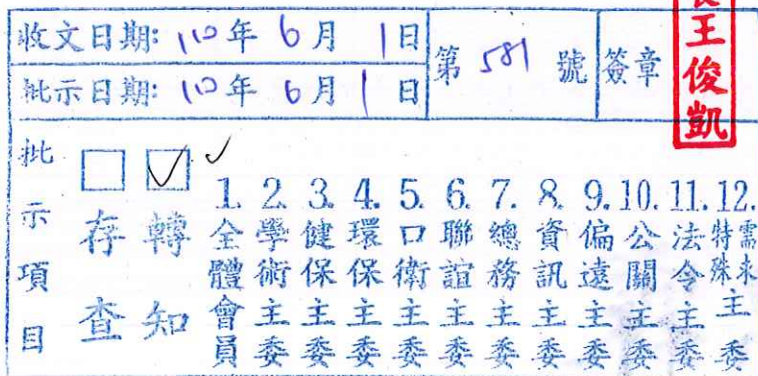 收文日期：110年6月1日
批示日期：110年6月1日
第581號
簽章
王俊凱
批示項目
存查
轉知
1.全體會員
2.學術主委
3.健保主委
4.環保主委
5.口衛主委
6.聯誼主委
7.總務主委
8.資訊主委
9.偏遠主委
10.公關主委
11.法令主委
12.特殊需求主委